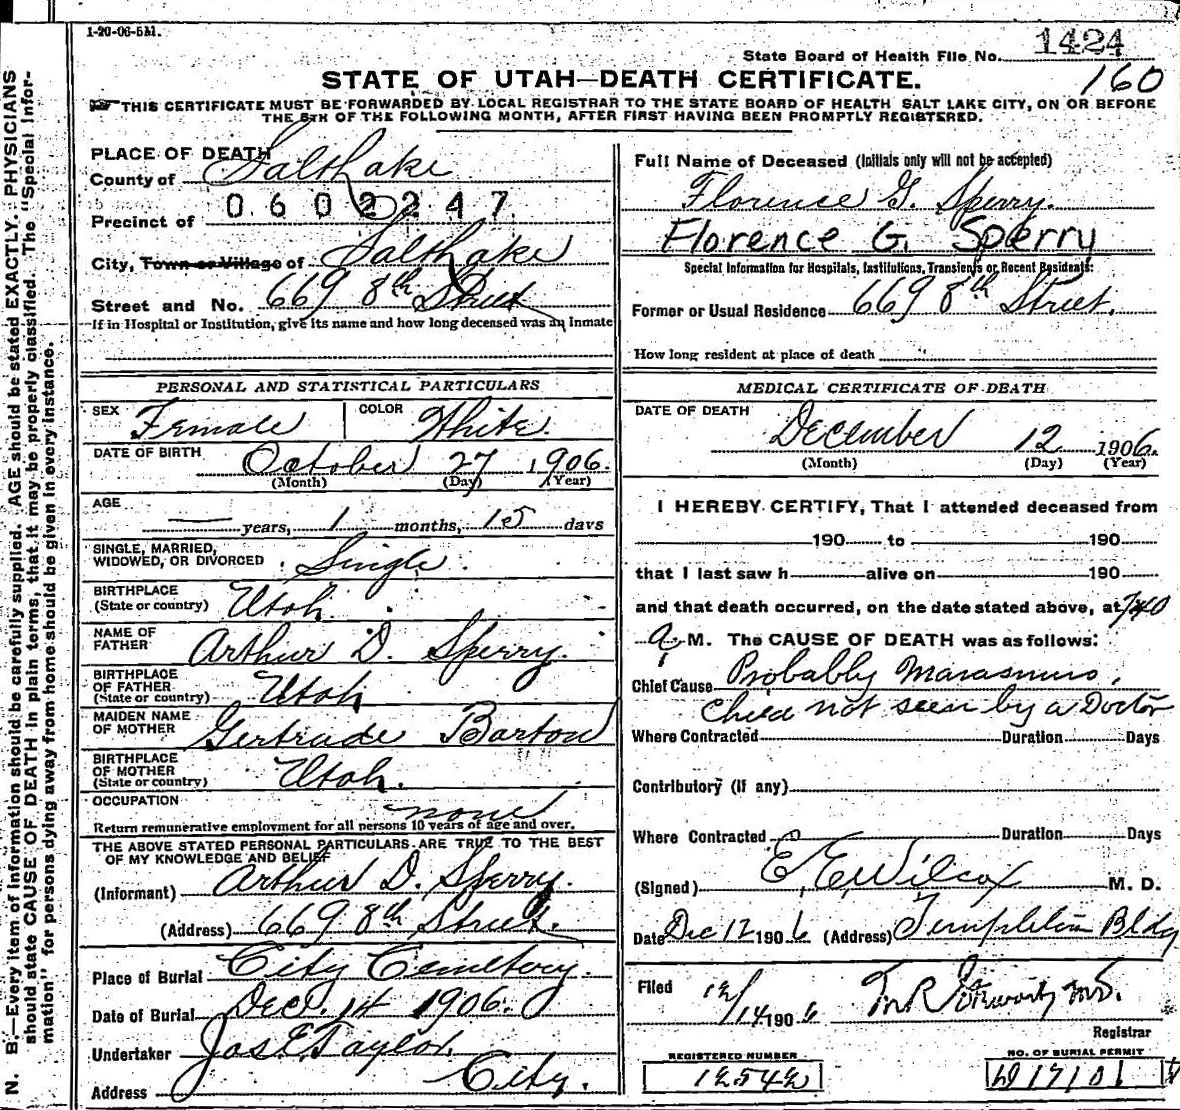 1-20-06-5M.
State Board of Health File No. 1424
160
STATE OF UTAH—DEATH CERTIFICATE.
THIS CERTIFICATE MUST BE FORWARDED BY LOCAL REGISTRAR TO THE STATE BOARD OF HEALTH SALT LAKE CITY, ON OR BEFORE
THE 5TH OF THE FOLLOWING MONTH, AFTER FIRST HAVING BEEN PROMPTLY REGISTERED.
N. B.—Every item of information should be carefully supplied. AGE should be stated EXACTLY. PHYSICIANS
should state CAUSE OF DEATH in plain terms, that it may be properly classified. The "Special Infor-
mation" for persons dying away from home should be given in every instance.
PLACE OF DEATH
County of Salt Lake
0602247
Precinct of
City, Town or Village of Salt Lake
Street and No. 669 8th Street
If in Hospital or Institution, give its name and how long deceased was an inmate
PERSONAL AND STATISTICAL PARTICULARS
SEX Female COLOR White.
DATE OF BIRTH October 27 1906.
(Month) (Day) (Year)
AGE
— years, 1 months, 15 days
SINGLE, MARRIED,
WIDOWED, OR DIVORCED Single.
BIRTHPLACE
(State or country) Utah.
NAME OF
FATHER Arthur D. Sperry.
BIRTHPLACE
OF FATHER
(State or country) Utah
MAIDEN NAME
OF MOTHER Gertrude Barton
BIRTHPLACE
OF MOTHER
(State or country) Utah.
OCCUPATION none
Return remunerative employment for all persons 10 years of age and over.
THE ABOVE STATED PERSONAL PARTICULARS ARE TRUE TO THE BEST
OF MY KNOWLEDGE AND BELIEF
(Informant) Arthur D. Sperry.
(Address) 669 8th Street.
Place of Burial City Cemetery.
Date of Burial Dec. 14 1906.
Undertaker Jos E. Taylor.
Address City.
Full Name of Deceased (Initials only will not be accepted)
Florence G. Sperry.
Florence G. Sperry
Special Information for Hospitals, Institutions, Transients or Recent Residents:
Former or Usual Residence 669 8th Street.
How long resident at place of death
MEDICAL CERTIFICATE OF DEATH
DATE OF DEATH
December 12 1906.
(Month) (Day) (Year)
I HEREBY CERTIFY, That I attended deceased from
190 to 190
that I last saw h alive on 190
and that death occurred, on the date stated above, at 740
a M. The CAUSE OF DEATH was as follows:
Chief Cause Probably Marasmus,
Child not seen by a Doctor
Where Contracted Duration Days
Contributory (if any)
Where Contracted Duration Days
(Signed) E. E. Wilcox M. D.
Date Dec 12 1906 (Address) Templeton Bldg
Filed 12/14 1906
M.D.
Registrar
REGISTERED NUMBER
12542
NO. OF BURIAL PERMIT
17101